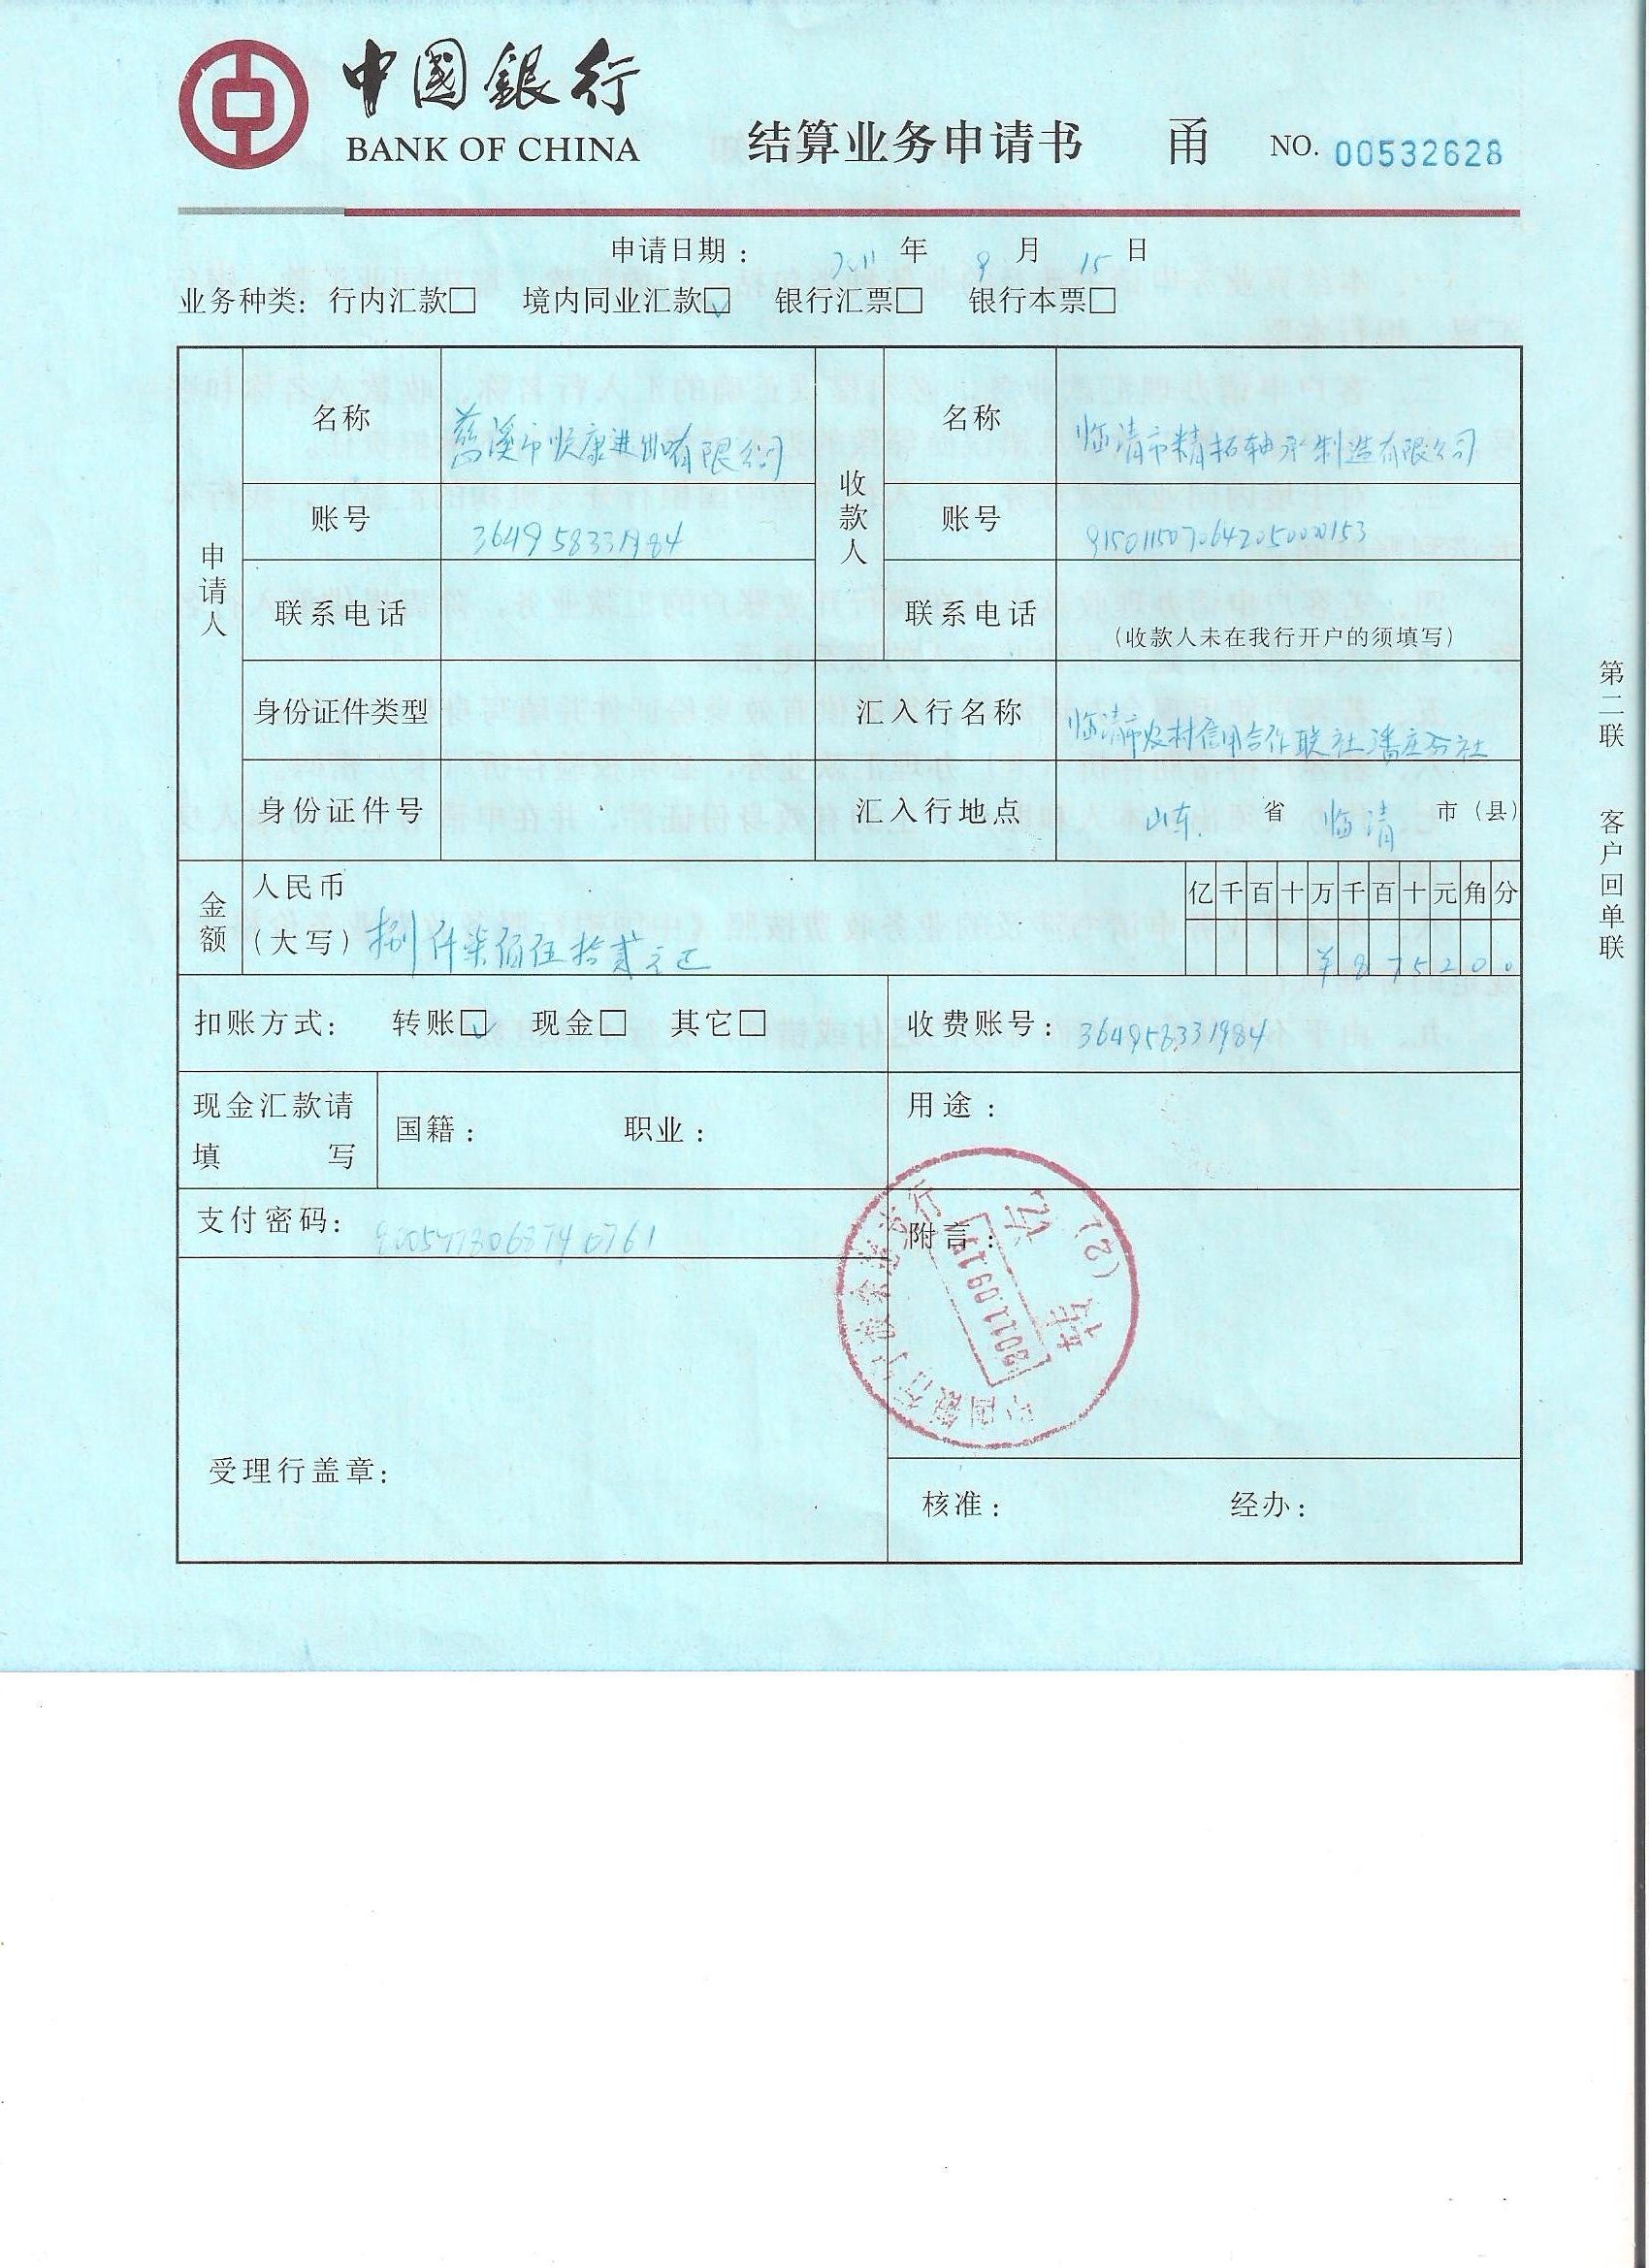 中國銀行
BANK OF CHINA
结算业务申请书 甬 NO. 00532628
申请日期: 2011 年 9 月 15 日
业务种类: 行内汇款□ 境内同业汇款☑ 银行汇票□ 银行本票□
申请人
名称 慈溪市 康进出口有限公司
收款人
名称 临清市精拓轴承制造有限公司
账号 364958331984
账号
联系电话
联系电话 (收款人未在我行开户的须填写)
身份证件类型
汇入行名称 临清市农村信用合作联社潘庄分社
身份证件号
汇入行地点 山东 省 临清 市(县)
金额
人民币
(大写) 捌仟柒佰伍拾贰元正
亿千百十万千百十元角分
¥875200
扣账方式: 转账☑ 现金□ 其它□
收费账号: 364958331984
现金汇款请
填写
国籍: 职业:
用途:
支付密码:
附言:
受理行盖章:
核准: 经办:
第二联 客户回单联
转讫
(2)